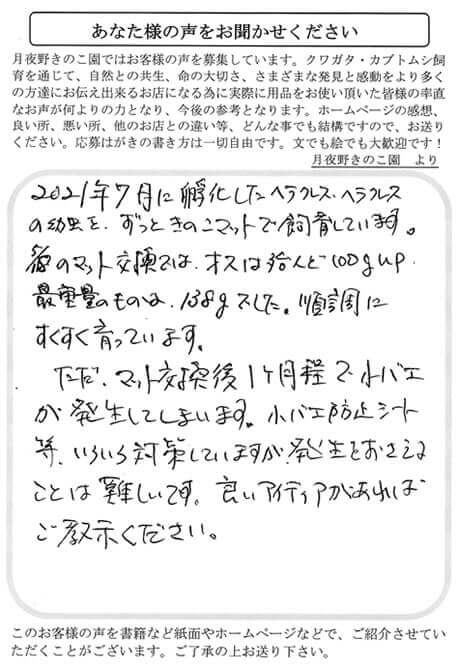 あなた様の声をお聞かせください
月夜野きのこ園ではお客様の声を募集しています。クワガタ・カブトムシ飼
育を通じて、自然との共生、命の大切さ、さまざまな発見と感動をより多く
の方達にお伝え出来るお店になる為に実際に用品をお使い頂いた皆様の率直
なお声が何よりの力となり、今後の参考となります。ホームページの感想、
良い所、悪い所、他のお店との違い等、どんな事でも結構ですので、お送り
ください。応募はがきの書き方は一切自由です。文でも絵でも大歓迎です！
月夜野きのこ園　より
2021年7月に孵化したヘラクルス・ヘラクルス
の幼虫を、ずっときのこマットで飼育しています。
のマット交換では、オスは殆んど100gup.
最重量のものは、138gでした。順調に
すくすく育っています。
ただ、マット交換後1ヶ月程で小バエ
が発生してしまいます。小バエ防止シート
等、いろいろ対策していますが、発生をおさえる
ことは難しいです。良いアイディアがあれば
ご教示ください。
このお客様の声を書籍など紙面やホームページなどで、ご紹介させてい
ただくことがございます。ご了承の上お送り下さい。